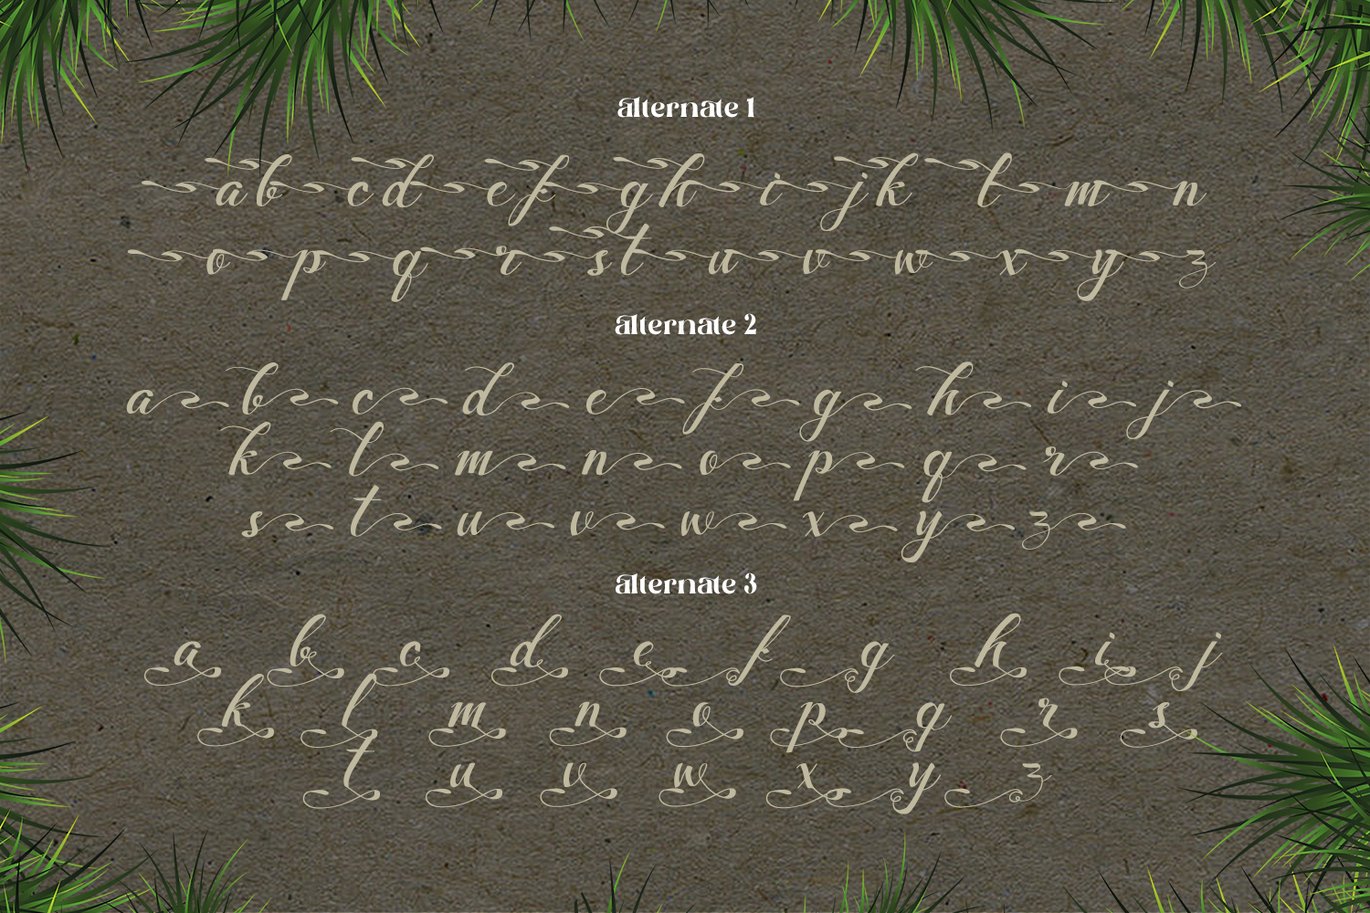 alternate 1
a b c d e f g h i j k l m n
o p q r s t u v w x y z
alternate 2
a b c d e f g h i j
k l m n o p q r
s t u v w x y z
alternate 3
a b c d e f g h i j
k l m n o p q r s
t u v w x y z